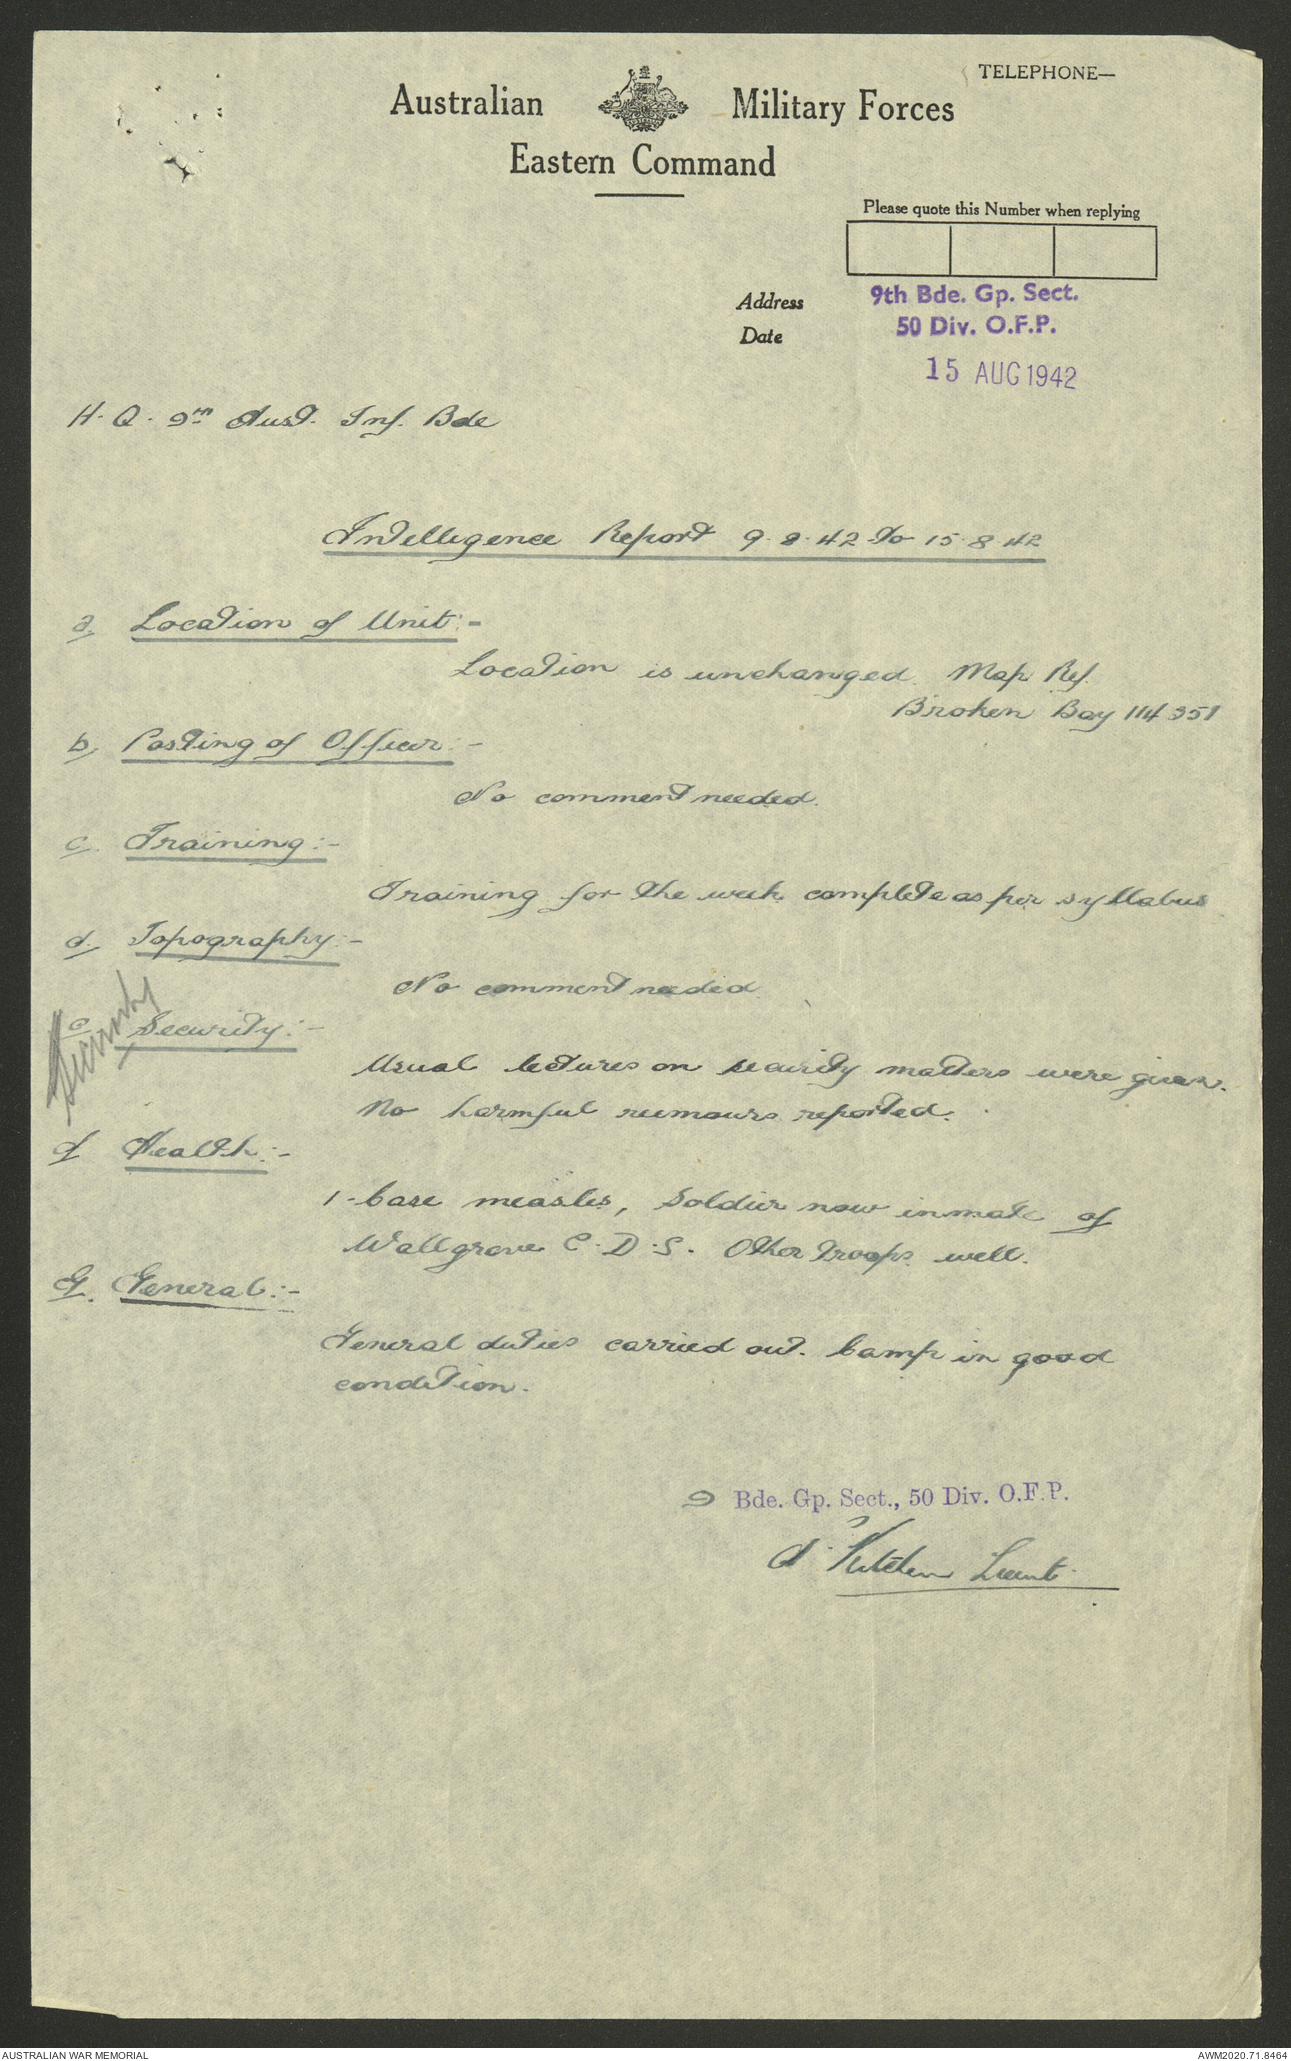 TELEPHONE—
Australian Military Forces
Eastern Command
Please quote this Number when replying
Address 9th Bde. Gp. Sect.
50 Div. O.F.P.
Date
15 AUG 1942
H. Q. 9th Aust. Inf. Bde
Intelligence Report 9.8.42 to 15.8.42
a. Location of Unit:-
Location is unchanged. Map Ref.
Broken Bay 114351
b. Posting of Officer:-
No comment needed.
c. Training:-
Training for the week complete as per syllabus
d. Topography:-
No comment needed
Security
e Security:-
Usual lectures on security matters were given.
No harmful rumours reported.
f Health:-
1-case measles, Soldier now inmate of
Wallgrove C.D.S. Other troops well.
G. General:-
General duties carried out. Camp in good
condition.
9 Bde. Gp. Sect., 50 Div. O.F.P.
Lieut.
AUSTRALIAN WAR MEMORIAL
AWM2020.71.8464